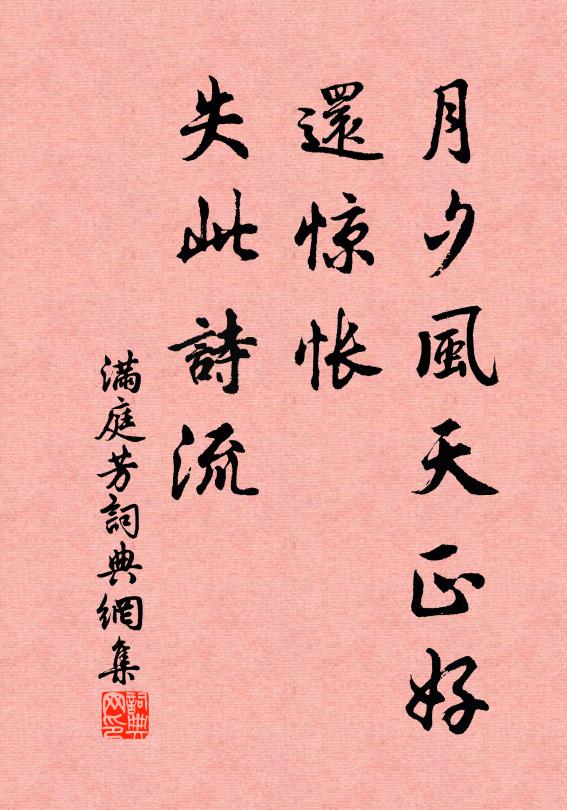 月夕風天正好
還惊怅
失此詩流
满庭芳詞典網集
詞典
网印